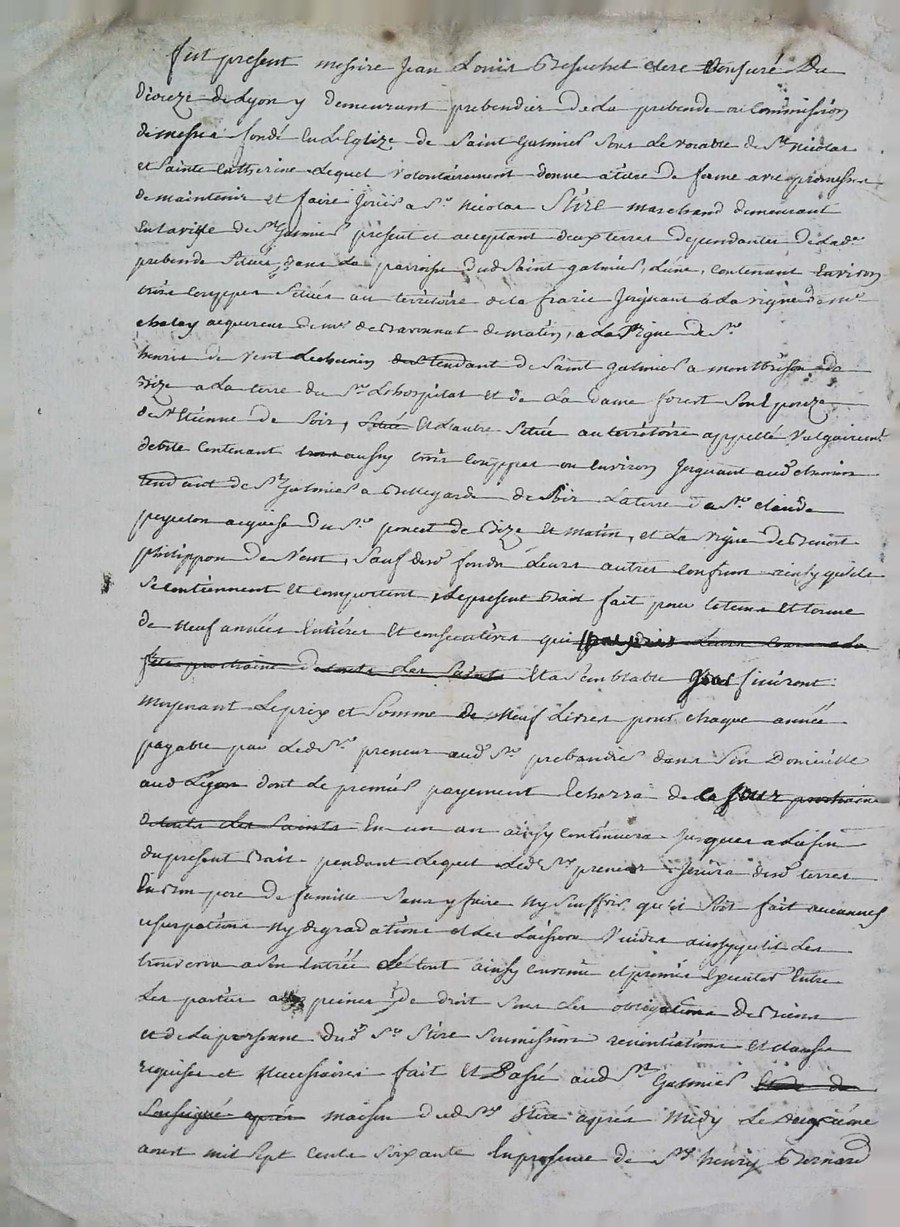 fut present messire Jean Louis Besuchet clerc tonsuré du
dioceze de Lyon y demeurant prebendier de la prebende ou Commission
de messes fondé en L'Eglize de Saint Galmier sous Le vocable de St Nicolas
et Sainte Catherine Lequel volontairement donne a titre de ferme avec promesse
de maintenir et faire jouir a Sr Nicolas Stize marchand demeurant
en la ville de St Galmier present et acceptant deux terres dependantes de lade
prebende Situées dans la parroisse dud Saint galmier, L'une, contenant Environ
trois Coupées Situées au territoire de la frarie Joignant a La vigne de Mr
chalay acquereur de mr de Baronnat de matin, a La Vigne de Sr
henris de vent Le chemin tendant de Saint galmier a montbrison de
Bize a La terre du Sr Lhospital et de La dame forest
de St Etienne de Soir, Situé Et L'autre Située au territoire appellé Vulgairemt
contenant trois aussy trois Coupées ou Environ Joignant aud chemin
tendant de St Galmier a Bellegarde de Soir La terre de Sr claude
peyrelon acquise du Sr poncet de Bize et matin, et La vigne de Benoit
philippon de Vent, Sauf desd fonds Leurs autres Confins ainsy quils
Se contiennent et comportent, Le present Bail fait pour le tems et terme
de Neuf années Entières et consecutives qui
fete prochaine de touts Les Saints Et a Semblable Jour finiront
moyenant Le prix et Somme de Neuf Livres pour chaque année
payable par Led Sr preneur aud Sr prebandier dans Son Domicille
aud Lyon dont Le premier payement Echerra de ce Jour prochaine
de touts Les Saints En un an ainsy continuera Jusques a La fin
du present Bail pendant Lequel Led Sr preneur Jouira desd terres
En Bon pere de famille Sans y faire Ny Souffrir qu'il Soit fait aucunes
usurpations Ny degradations et Les Laissera Vuides ainsy qu'il Les
trouvera a Son Entrée Le tout ainsy convenu et promis Executer Entre
Les parties aux peines de droit Sous Les obligations de Biens
et de La personne dud Sr Stize Soumissions renontiations et clauses
requises et Necessaires fait et Passé aud St Galmier
Soussigné après maison dud Sr Stize après Midy Le Deuxième
aoust mil Sept Cents Soixante En presence de Sr henry Bernard